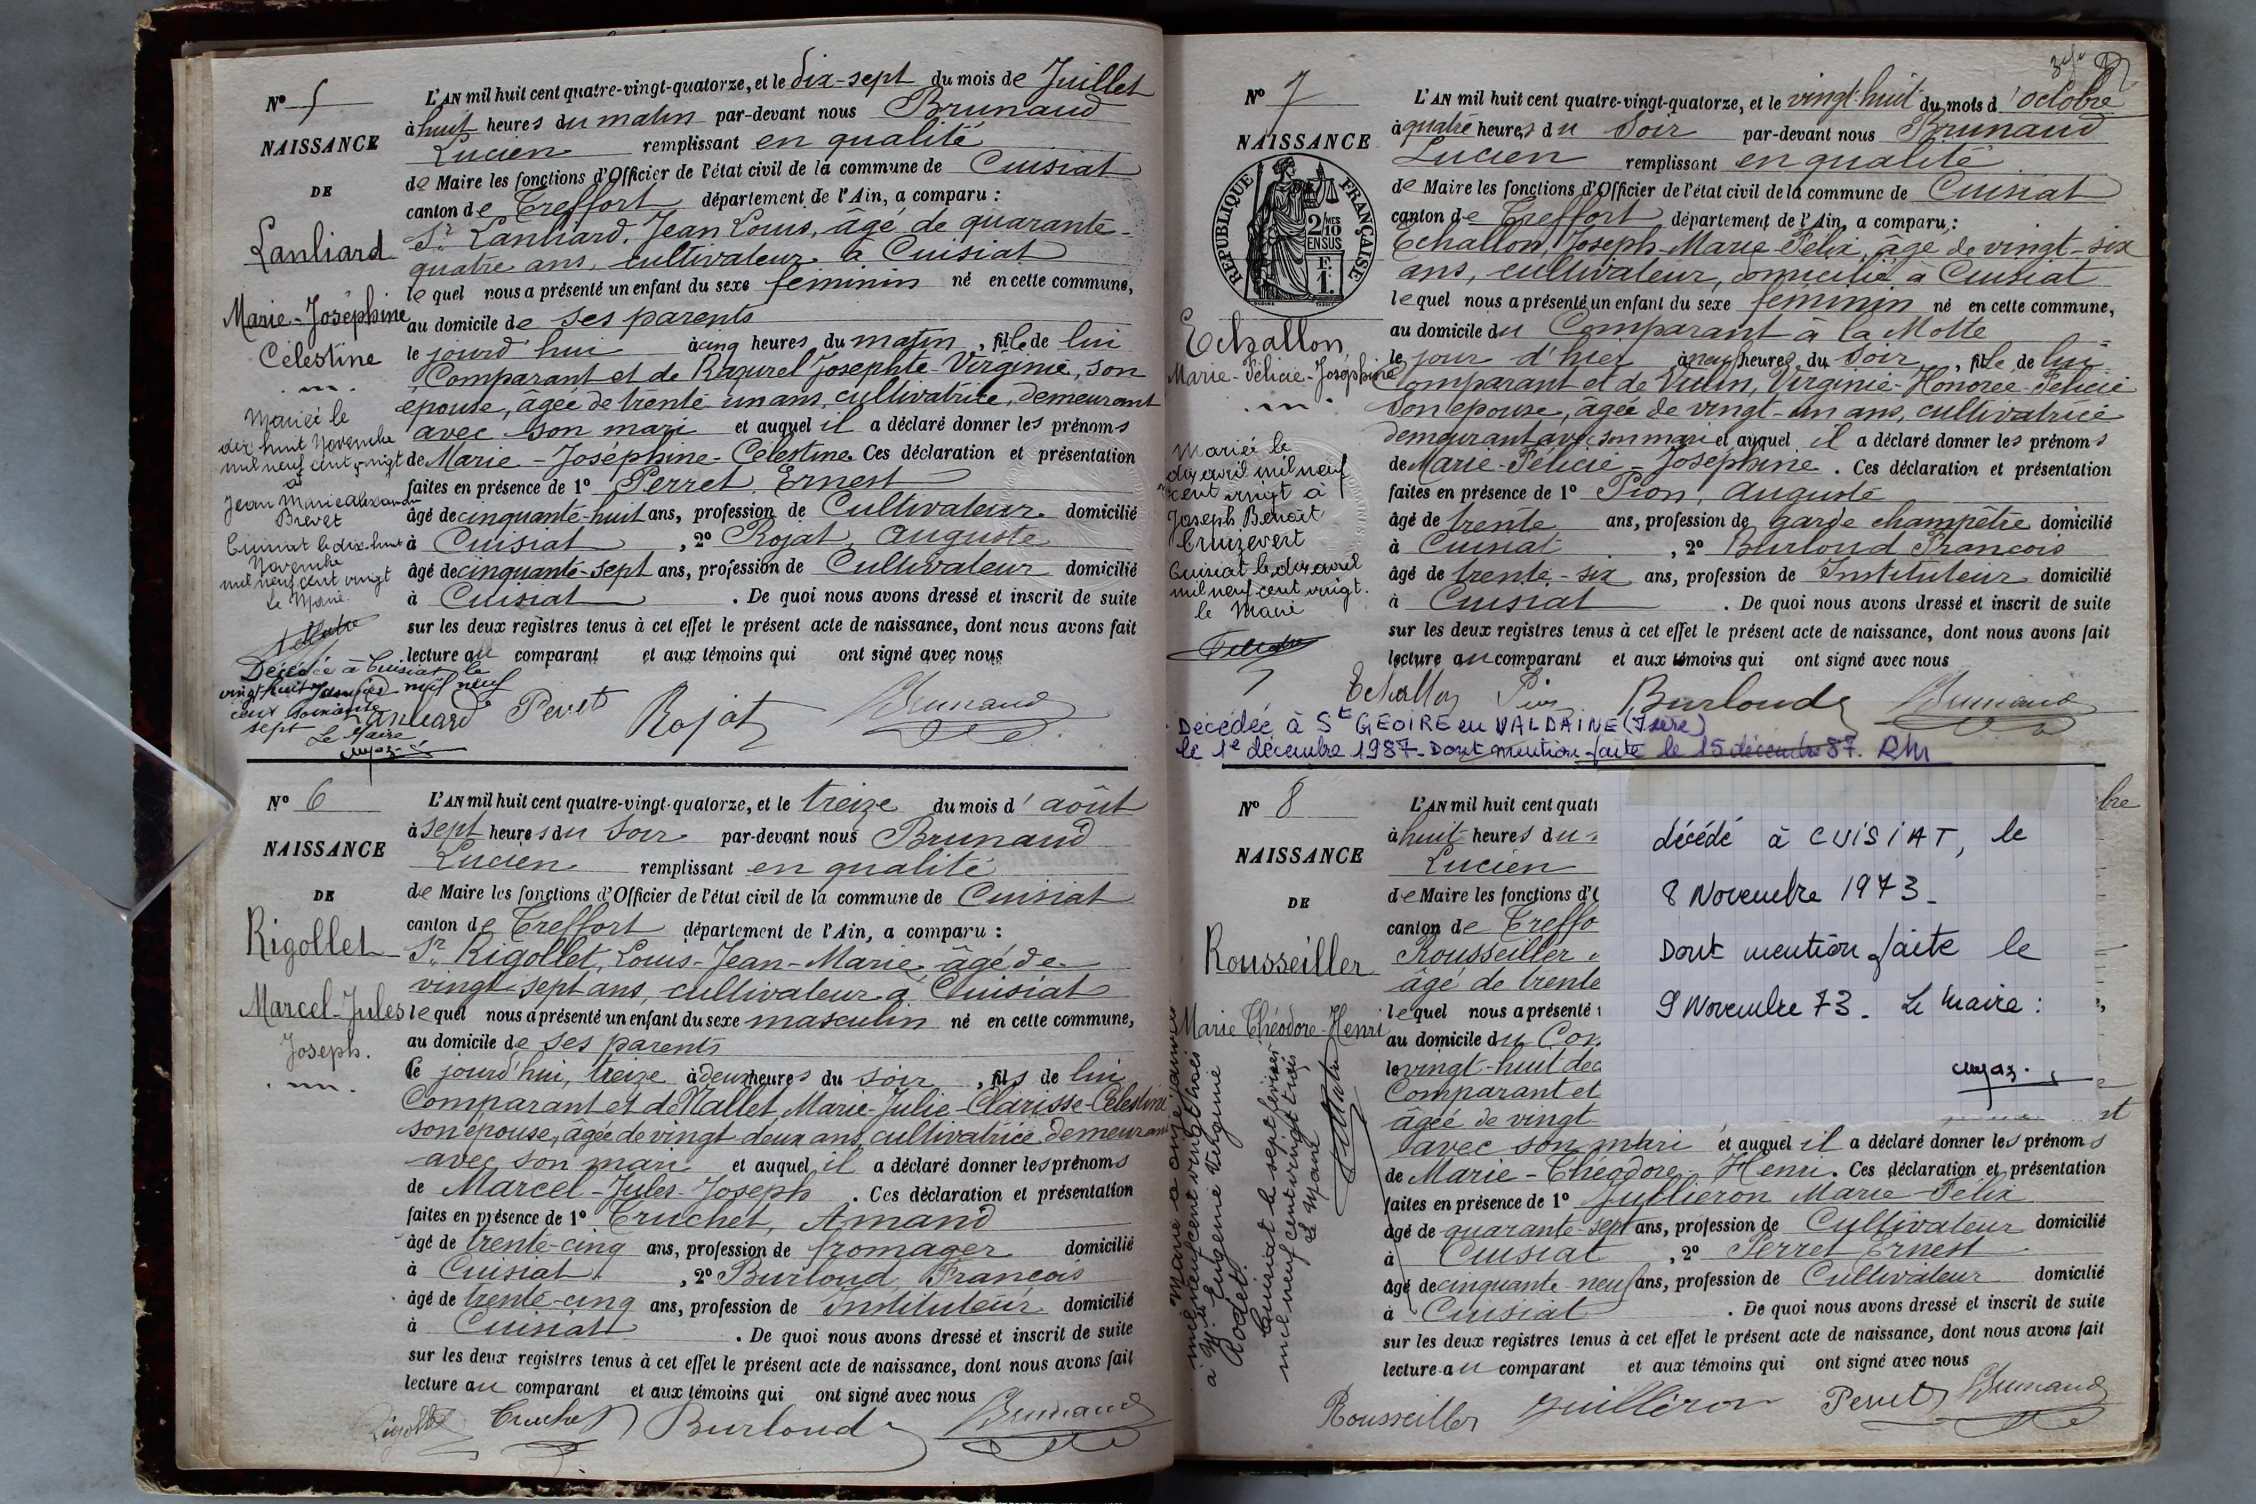 N° 5
NAISSANCE
DE
Lanliard
Marie-Joséphine
Célestine
Mariée le
dix huit Novembre
mil neuf cent vingt
à
Jean Marie Alexandre
Brevet
Cuisiat le dix-huit
Novembre
mil neuf cent vingt
Le Maire
Décédée à Cuisiat le
vingt huit Janvier mil neuf
cent soixante
sept Le Maire
L'AN mil huit cent quatre-vingt-quatorze, et le dix-sept du mois de Juillet
à huit heures du matin par-devant nous Brunaud
Lucien remplissant en qualité
de Maire les fonctions d'Officier de l'état civil de la commune de Cuisiat
canton de Treffort département de l'Ain, a comparu :
Sr Lanliard, Jean Louis, âgé de quarante-
quatre ans, cultivateur à Cuisiat
lequel nous a présenté un enfant du sexe féminin né en cette commune,
au domicile de ses parents
le jourd'hui à cinq heures du matin, fille de lui
Comparant et de Razurel Josephte-Virginie, son
épouse, âgée de trente un ans, cultivatrice, demeurant
avec son mari et auquel il a déclaré donner les prénoms
de Marie-Joséphine-Célestine. Ces déclaration et présentation
faites en présence de 1° Perret Ernest
âgé de cinquante-huit ans, profession de Cultivateur domicilié
à Cuisiat, 2° Rojat, Auguste
âgé de cinquante-sept ans, profession de Cultivateur domicilié
à Cuisiat. De quoi nous avons dressé et inscrit de suite
sur les deux registres tenus à cet effet le présent acte de naissance, dont nous avons fait
lecture au comparant et aux témoins qui ont signé avec nous
Lanliard Perret Rojat Brunaud
N° 6
NAISSANCE
DE
Rigollet
Marcel-Jules
Joseph.
L'AN mil huit cent quatre-vingt-quatorze, et le treize du mois d'août
à sept heures du soir par-devant nous Brunaud
Lucien remplissant en qualité
de Maire les fonctions d'Officier de l'état civil de la commune de Cuisiat
canton de Treffort département de l'Ain, a comparu :
Sr Rigollet, Louis-Jean-Marie, âgé de
vingt-sept ans, cultivateur à Cuisiat
lequel nous a présenté un enfant du sexe masculin né en cette commune,
au domicile de ses parents
le jourd'hui, treize à deux heures du soir, fils de lui
Comparant et de Nallet, Marie-Julie-Clarisse-Célestine
son épouse, âgée de vingt deux ans, cultivatrice demeurant
avec son mari et auquel il a déclaré donner les prénoms
de Marcel-Jules-Joseph. Ces déclaration et présentation
faites en présence de 1° Truchet, Amand
âgé de trente-cinq ans, profession de fromager domicilié
à Cuisiat, 2° Burloud, François
âgé de trente-cinq ans, profession de Instituteur domicilié
à Cuisiat. De quoi nous avons dressé et inscrit de suite
sur les deux registres tenus à cet effet le présent acte de naissance, dont nous avons fait
lecture au comparant et aux témoins qui ont signé avec nous
Rigollet Truchet Burloud Brunaud
N° 7
NAISSANCE
RÉPUBLIQUE FRANÇAISE
2/10 EN SUS
F. 1.
Echallon
Marie-Félicie-Joséphine
Mariée le
dix avril mil neuf
cent vingt à
Joseph Benoit
Cruizevert
Cuisiat le dix avril
mil neuf cent vingt.
le Maire
L'AN mil huit cent quatre-vingt-quatorze, et le vingt-huit du mois d'octobre
à quatre heures du soir par-devant nous Brunaud
Lucien remplissant en qualité
de Maire les fonctions d'Officier de l'état civil de la commune de Cuisiat
canton de Treffort département de l'Ain, a comparu :
Echallon, Joseph-Marie-Félix, âgé de vingt-six
ans, cultivateur, domicilié à Cuisiat
lequel nous a présenté un enfant du sexe féminin né en cette commune,
au domicile du Comparant à la Motte
le jour d'hier à neuf heures du soir, fille de lui
Comparant et de Vulin, Virginie-Honorée-Félicie
son épouse, âgée de vingt-un ans, cultivatrice
demeurant avec son mari et auquel il a déclaré donner les prénoms
de Marie-Félicie-Joséphine. Ces déclaration et présentation
faites en présence de 1° Pion, Auguste
âgé de trente ans, profession de garde champêtre domicilié
à Cuisiat, 2° Burloud François
âgé de trente-six ans, profession de Instituteur domicilié
à Cuisiat. De quoi nous avons dressé et inscrit de suite
sur les deux registres tenus à cet effet le présent acte de naissance, dont nous avons fait
lecture au comparant et aux témoins qui ont signé avec nous
Echallon Pion Burloud Brunaud
Décédée à St GEOIRE en VALDAINE (Isère)
le 1e décembre 1987. Dont mention faite le 15 décembre 87.
N° 8
NAISSANCE
DE
Rousseiller
Marie Théodore-Henri
Marié le onze Janvier
mil neuf cent vingt trois
à Mlle Eugénie Virginie
Rodet.
Cuisiat le sept février
mil neuf cent vingt trois
Le Maire
L'AN mil huit cent quat
à huit heures du
Lucien
de Maire les fonctions d'O
canton de Treffo
Rousseiller
âgé de trente
lequel nous a présenté
au domicile du Com
le vingt-huit déc
Comparant et
âgée de vingt
avec son mari et auquel il a déclaré donner les prénoms
de Marie-Théodore-Henri. Ces déclaration et présentation
faites en présence de 1° Juilléron Marie-Félix
âgé de quarante-sept ans, profession de Cultivateur domicilié
à Cuisiat, 2° Perret Ernest
âgé de cinquante neuf ans, profession de Cultivateur domicilié
à Cuisiat. De quoi nous avons dressé et inscrit de suite
sur les deux registres tenus à cet effet le présent acte de naissance, dont nous avons fait
lecture au comparant et aux témoins qui ont signé avec nous
Rousseiller Juilléron Perret Brunaud
décédé à CUISIAT, le
8 Novembre 1973.
Dont mention faite le
9 Novembre 73. Le maire :